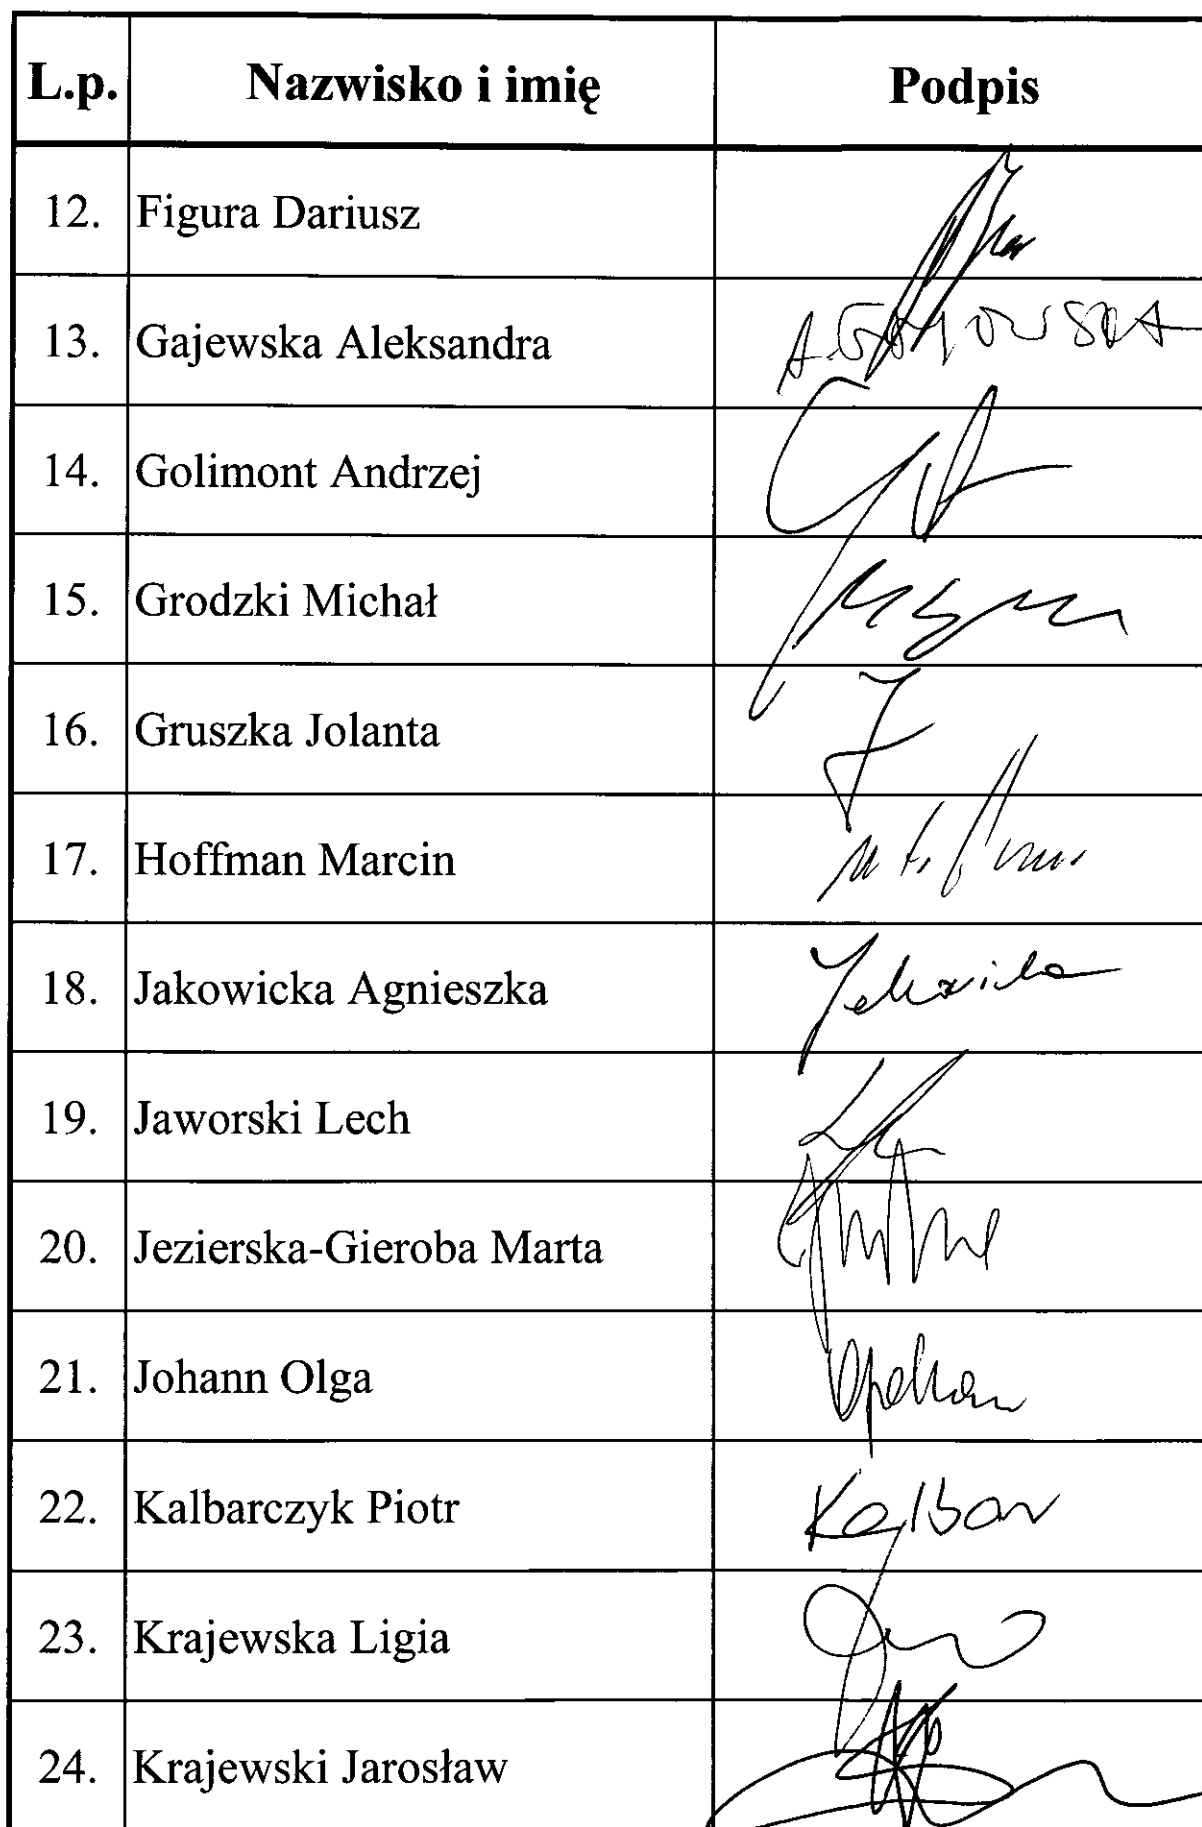 L.p. Nazwisko i imię Podpis
12. Figura Dariusz
13. Gajewska Aleksandra
14. Golimont Andrzej
15. Grodzki Michał
16. Gruszka Jolanta
17. Hoffman Marcin
18. Jakowicka Agnieszka
19. Jaworski Lech
20. Jezierska-Gieroba Marta
21. Johann Olga
22. Kalbarczyk Piotr Kalbar
23. Krajewska Ligia
24. Krajewski Jarosław